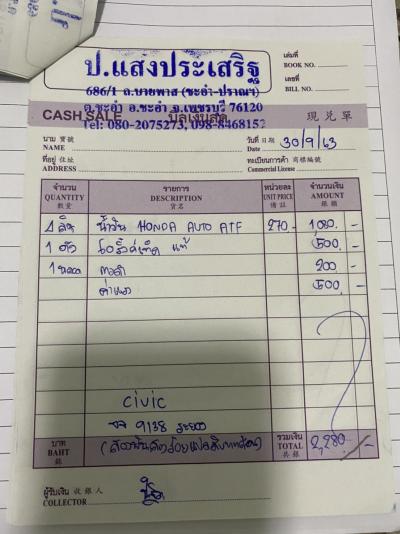 ป.แสงประเสริฐ
686/1 ถ.บายพาส (ชะอำ-ปราณฯ)
ต.ชะอำ อ.ชะอำ จ.เพชรบุรี 76120
Tel: 080-2075273, 098-8468152
เล่มที่
BOOK NO.
เลขที่
BILL NO.
CASH SALE บิลเงินสด 現兌單
นาม 寶號
NAME
วันที่ 日期
Date 30/9/63
ที่อยู่ 住址
ADDRESS
ทะเบียนการค้า 商標編號
Commercial License
จำนวน QUANTITY 數量
รายการ DESCRIPTION 貨名
หน่วยละ UNIT PRICE 備註
จำนวนเงิน AMOUNT 銀額
4 ลิตร น้ำมัน HONDA AUTO ATF 270.- 1080.-
1 ตัว แท้ 500.-
1 หลอด กาวดำ 200.-
ค่าแรง 500.-
civic
9138 ระยอง
บาท BAHT 銖
รวมเงิน TOTAL 共銀 2,280.-
ผู้รับเงิน 收銀人
COLLECTOR